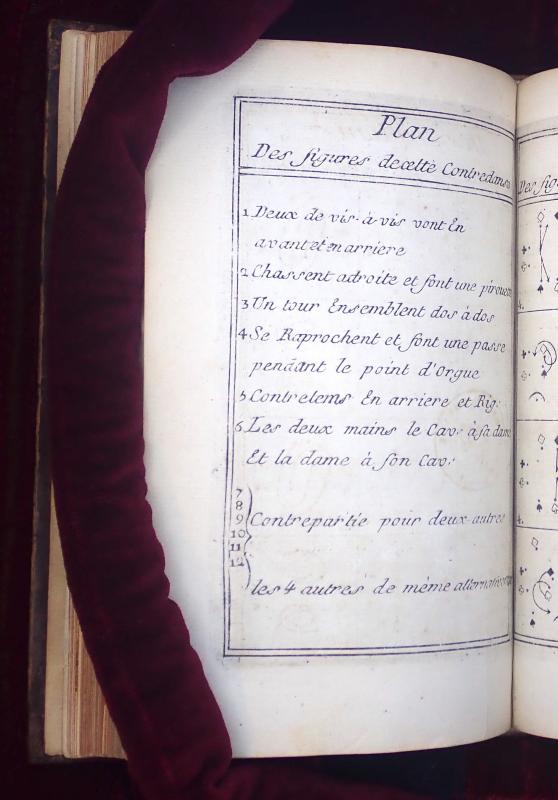 Plan
Des figures de cette Contredanse
1 Deux de vis-à-vis vont En
avant et en arriere
2 Chassent adroite et font une pirouette
3 Un tour Ensemblent dos à dos
4 Se Raprochent et font une passe
pendant le point d'Orgue
5 Contretems En arriere et Rig:
6 Les deux mains le Cav: à sa dame
Et la dame à son Cav:
7
8
9
10
11
12
Contrepartie pour deux autres
les 4 autres de même
Des fig